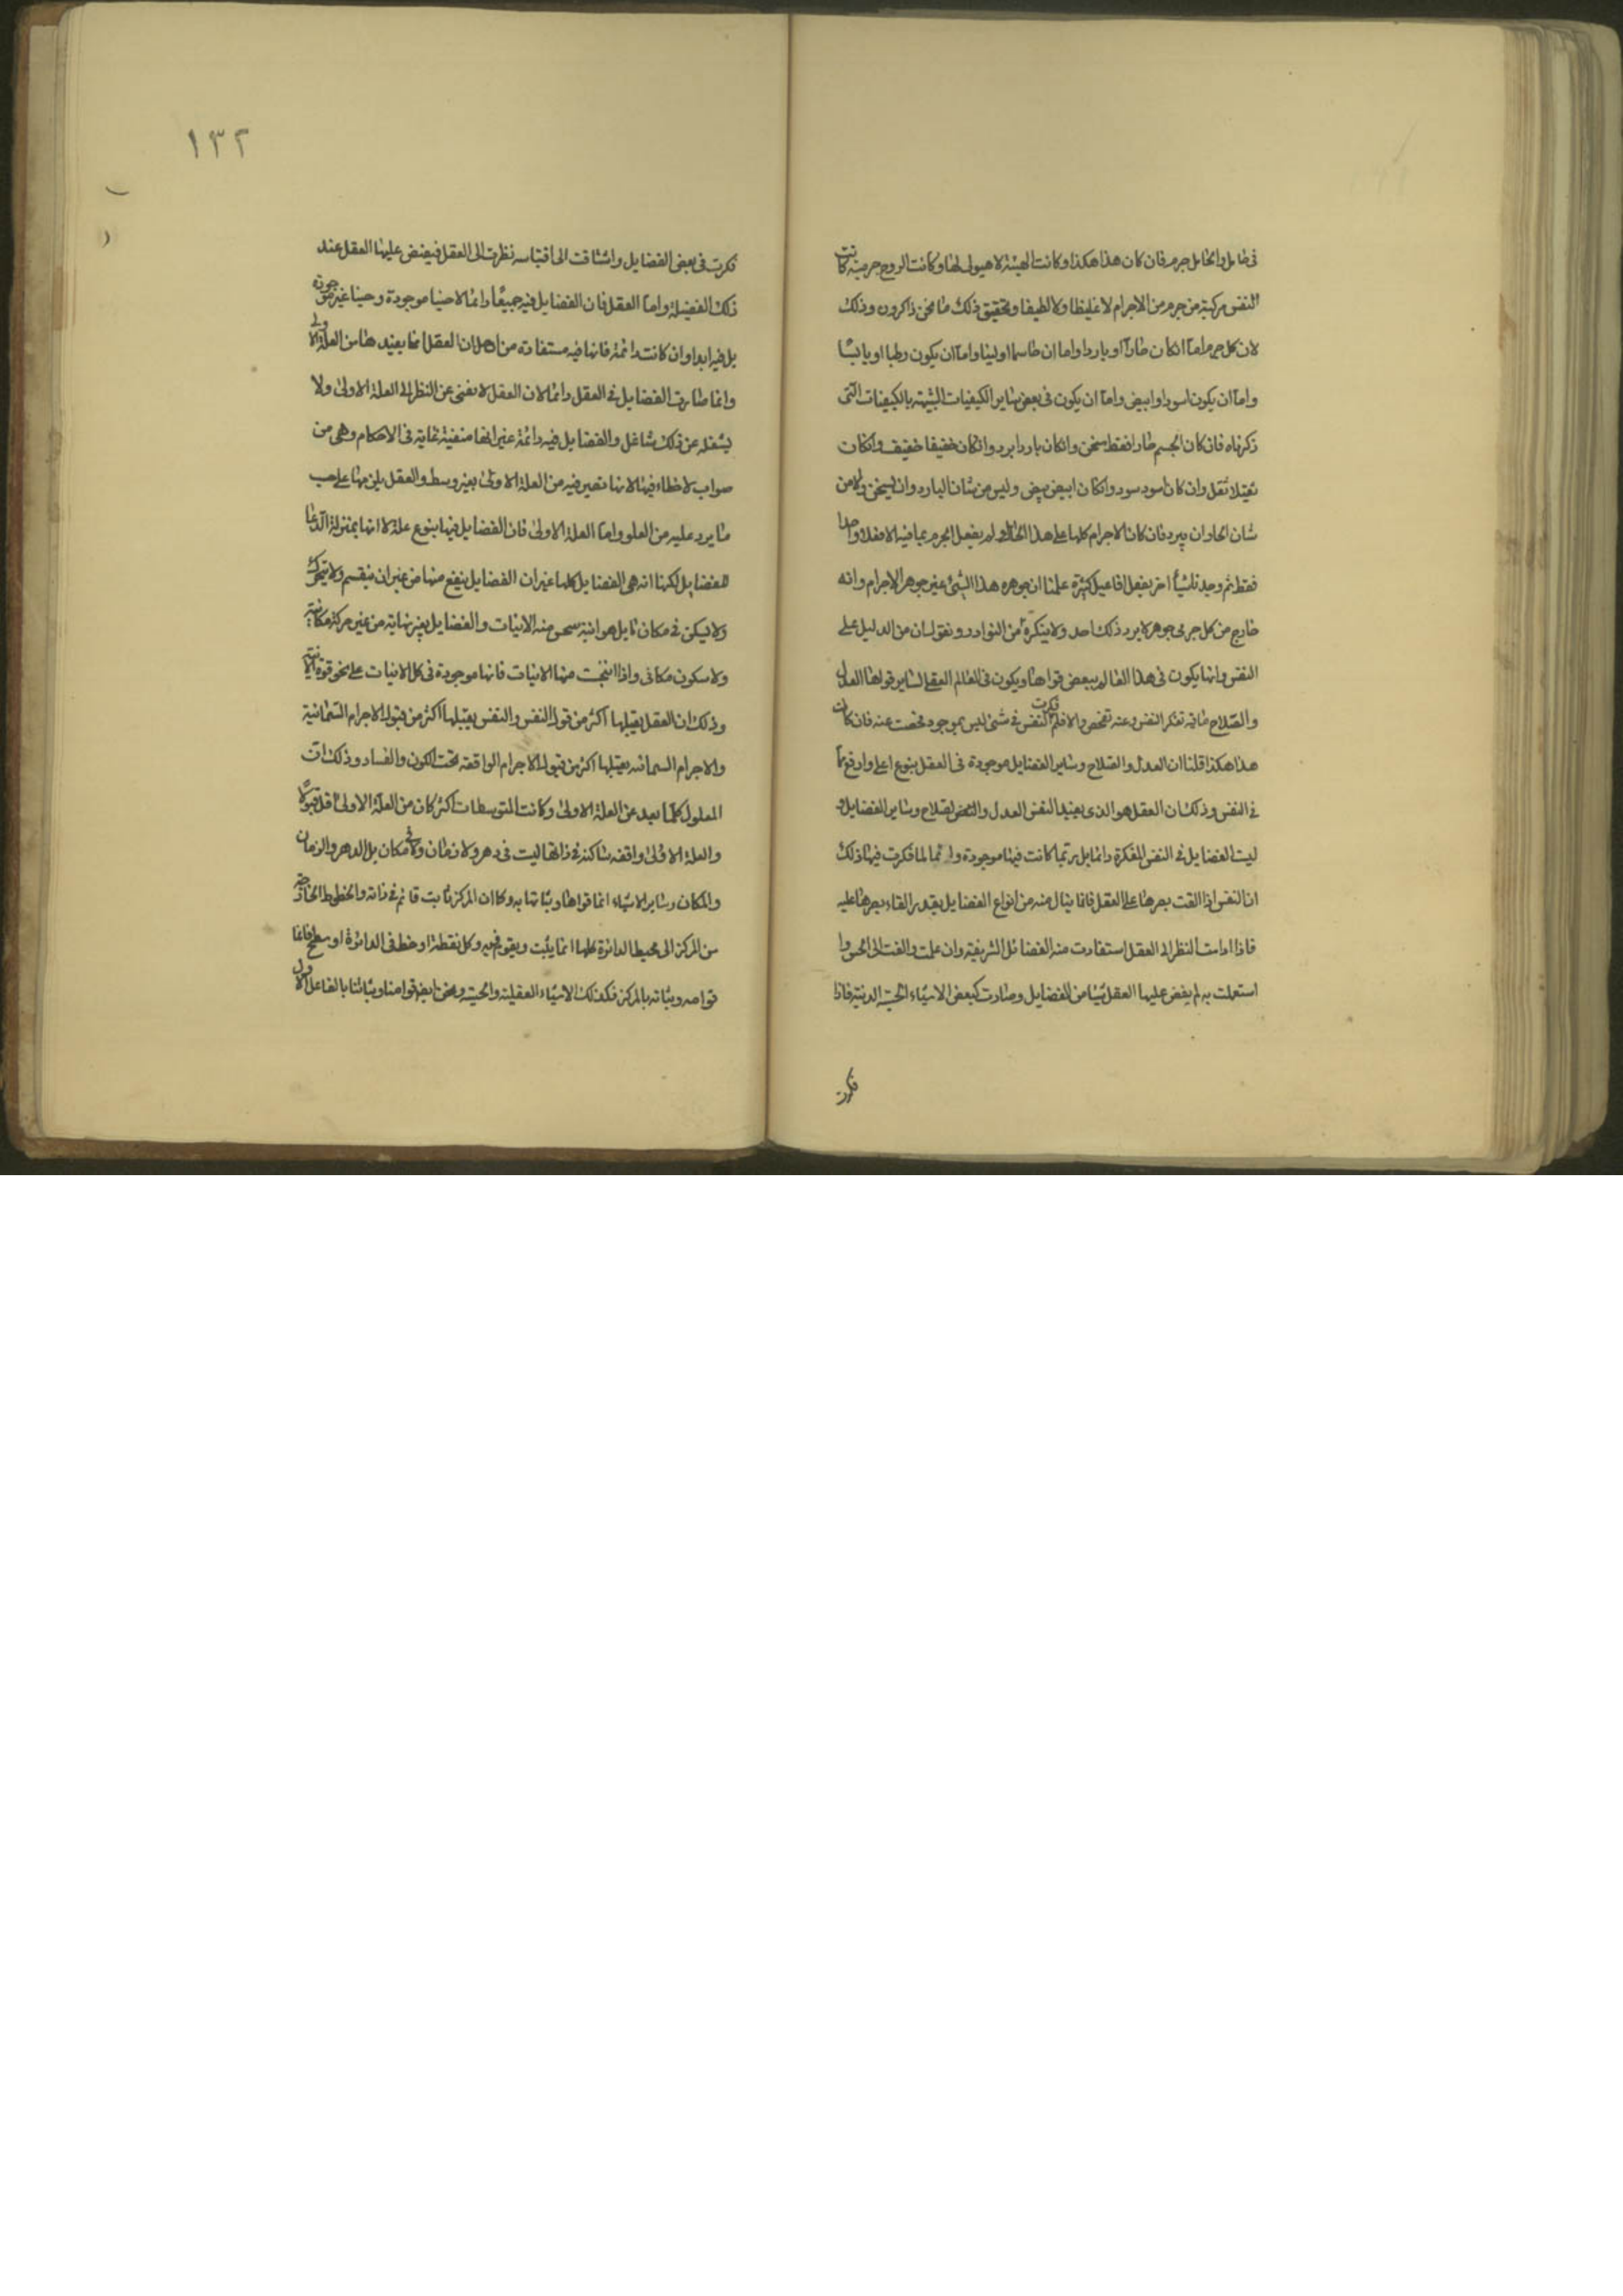 فى حامل والحامل جرم فان كان هذا هكذا وكانت الهيئة لا هيولى لها وكانت الروح جرمية كانت
النفس مركبة من جرم من الاجرام لا غليظا ولا لطيفا وتحقيق ذلك ما نحن ذاكرون وذلك
لان كل جرم اما ان كان حارا او باردا واما ان جاسيا او لينا واما ان يكون رطبا او يابسا
واما ان يكون اسود او ابيض واما ان يكون فى بعض ساير الكيفيات الشبيهة بالكيفيات التى
ذكرناه فان كان الجسم حارا فقط سخن وان كان باردا برد وان كان خفيفا خفيف وان كان
ثقيلا ثقل وان كان اسود سود وان كان ابيض بيض وليس من شان البارد ان يسخن ولا من
شان الحار ان يبرد فان كان الاجرام كلها على هذا الحال ولم يفعل الجرم بما فيه الا فعلا واحدا
فقط ثم وجدنا شيأ اخر يفعل افاعيل كثيرة علمنا ان جوهره هذا الشئ غير جوهر الاجرام وانه
خارج من كل جرمى جوهر لا يرد ذلك احد ولا ينكره من النوادر ونقول ان من الدليل على
النفس وانها يكون فى هذا العالم ببعض قواها ويكون فى العالم العقلى لساير قواها العدل
والصلاح مافيه تفكر النفس وعنه تفحص والا فلم فكرت النفس فى شئ ليس بموجود فحصت عنه فان كان
هذا هكذا قلنا ان العدل والصلاح وساير الفضايل موجودة فى العقل بنوع اعلى وارفع مما
فى النفس وذلك ان العقل هو الذى يفيد النفس العدل والصلاح وساير الفضايل و
ليست الفضايل فى النفس المفكرة دائما بل ربما كانت فيها موجودة وانما لما فكرت فيها ذلك
ان النفس اذا القت بصرها على العقل فانما ينال منه من انواع الفضايل بقدر القاء بصرها عليه
فاذا ادامت النظر الى العقل استفادت منه الفضائل الشريفة وان علمت والفت الى الحس وا
استعملت به لم يفض عليها العقل شيئا من الفضايل وصارت كبعض الاشياء الحسية الدنية فاذا
فكرت
١٣٢
فكرت فى بعض الفضايل واشتاقت الى اقتباسه نظرت الى العقل فيفيض عليها العقل عند
ذلك الفضيلة واما العقل فان الفضايل فيه جميعا دائما لا حينا موجودة وحينا غير موجودة
بل فيه ابدا وان كانت دائمة فانها فيه مستفادة من اجل ان العقل انما يفيدها من العلة الاولى
وانما صارت الفضايل فى العقل دائما لان العقل لا يفنى عن النظر الى العلة الاولى ولا
يشغله عن ذلك شاغل والفضايل فيه دائمة غير انها متقنة غاية فى الاحكام وهى من
صواب لا خطاء فيها لانها تصير فيه من العلة الاولى بغير وسط والعقل يلزمها على حسب
ما يرد عليه من العلو واما العلة الاولى فان الفضايل فيها بنوع علة لا انها بمنزلة الوعا
للفضايل لكنها انه هى الفضايل كلها غير ان الفضايل ينبع منها من غير ان ينقسم ولا يتحرك
ولا يسكن فى مكان ما بل هو انية ينبجس منه الانيات والفضايل بغير نهاية من غير حركة مكانية
ولا سكون مكانى واذا انبجست منها الانيات فانها موجودة فى كل الانيات على نحو قوة الانية
وذلك ان العقل يقبلها اكثر من قبول النفس والنفس يقبلها اكثر من قبول الاجرام السماوية
والاجرام السماوية يقبلها اكثر من قبول الاجرام الواقعة تحت الكون والفساد وذلك ان
المعلول كلما بعد عن العلة الاولى وكانت المتوسطات اكثر كان من العلة الاولى اقل قبولا
والعلة الاولى واقفة ساكنة فى ذاتها ليست فى دهر ولا زمان ولا فى مكان بل الدهر والزمان
والمكان وساير الاشياء انما قواها وثباتها به وكما ان المركز ثابت قائم فى ذاته والخطوط الخارجة
من المركز الى محيط الدائرة كلها انما يثبت ويقوم فيه وكل نقطة او خط فى الدائرة او سطح فانما
قوامه وثباته بالمركز فكذلك الاشياء العقلية والحسية ونحن ايضا قوامنا وثباتنا بالفاعل الاول